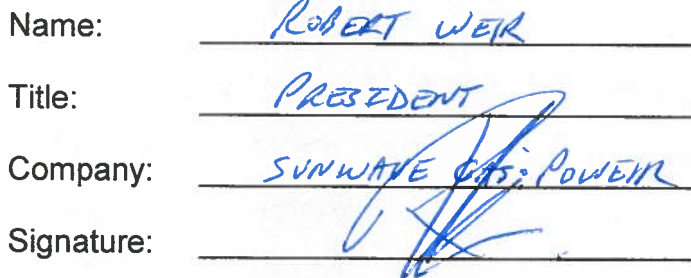 Name: ROBERT WEIR
Title: PRESIDENT
Company: SUNWAVE GAS & POWER
Signature: